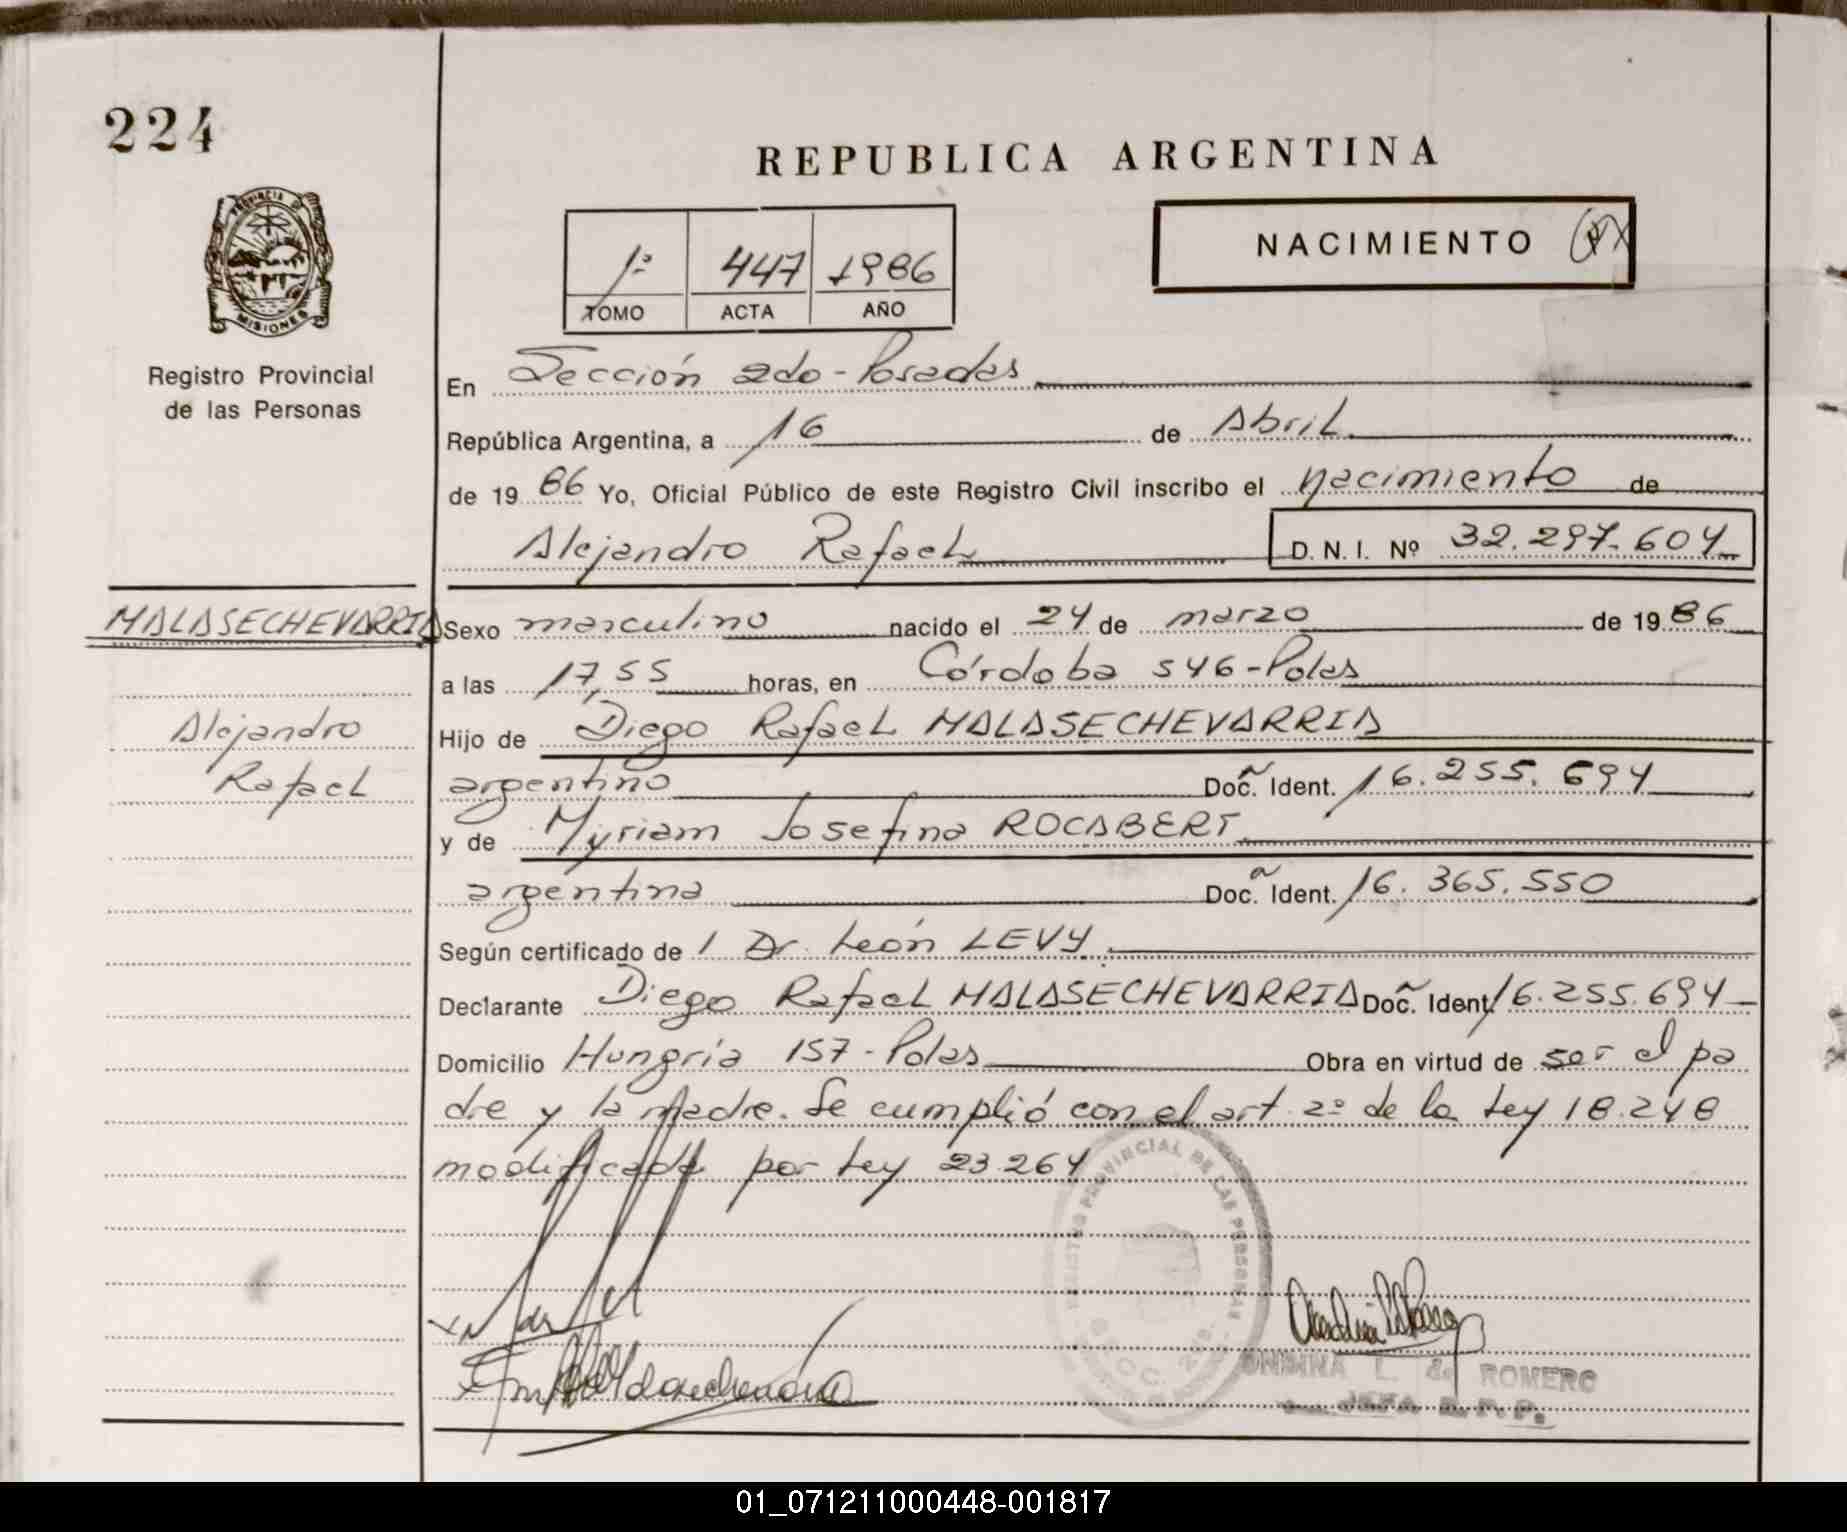 224
REPUBLICA ARGENTINA
PROVINCIA DE
MISIONES
Registro Provincial
de las Personas
1º 447 1986
TOMO ACTA AÑO
NACIMIENTO
En Sección 2do - Posadas
República Argentina, a 16 de Abril
de 19 86 Yo, Oficial Público de este Registro Civil inscribo el nacimiento de
Alejandro Rafael D. N. I. Nº 32.297.604
MALASECHEVARRIA
Alejandro
Rafael
Sexo masculino nacido el 24 de marzo de 19 86
a las 17,55 horas, en Córdoba 546 - Pdas
Hijo de Diego Rafael MALASECHEVARRIA
argentino Doc. Ident. 16.255.694
y de Myriam Josefina ROCABERT
argentina Doc. Ident. 16.365.550
Según certificado de 1 Dr. León LEVY
Declarante Diego Rafael MALASECHEVARRIA Doc. Ident. 16.255.694
Domicilio Hungría 157 - Pdas Obra en virtud de ser el pa
dre y la madre. Se cumplió con el art. 2º de la Ley 18.248
modificada por Ley 23.264
REGISTRO PROVINCIAL DE LAS PERSONAS
ONDINA L. de ROMERO
JEFA R. P. P.
01_071211000448-001817